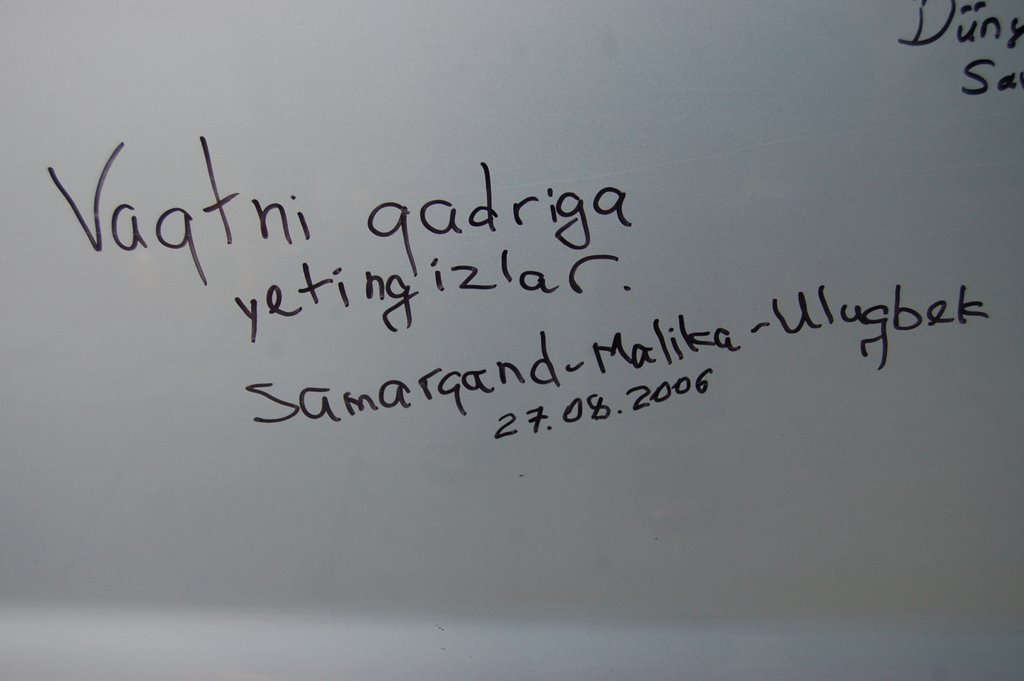 Vaqtni qadriga
yetingizlar.
Samarqand-Malika-Ulugbek
27.08.2006